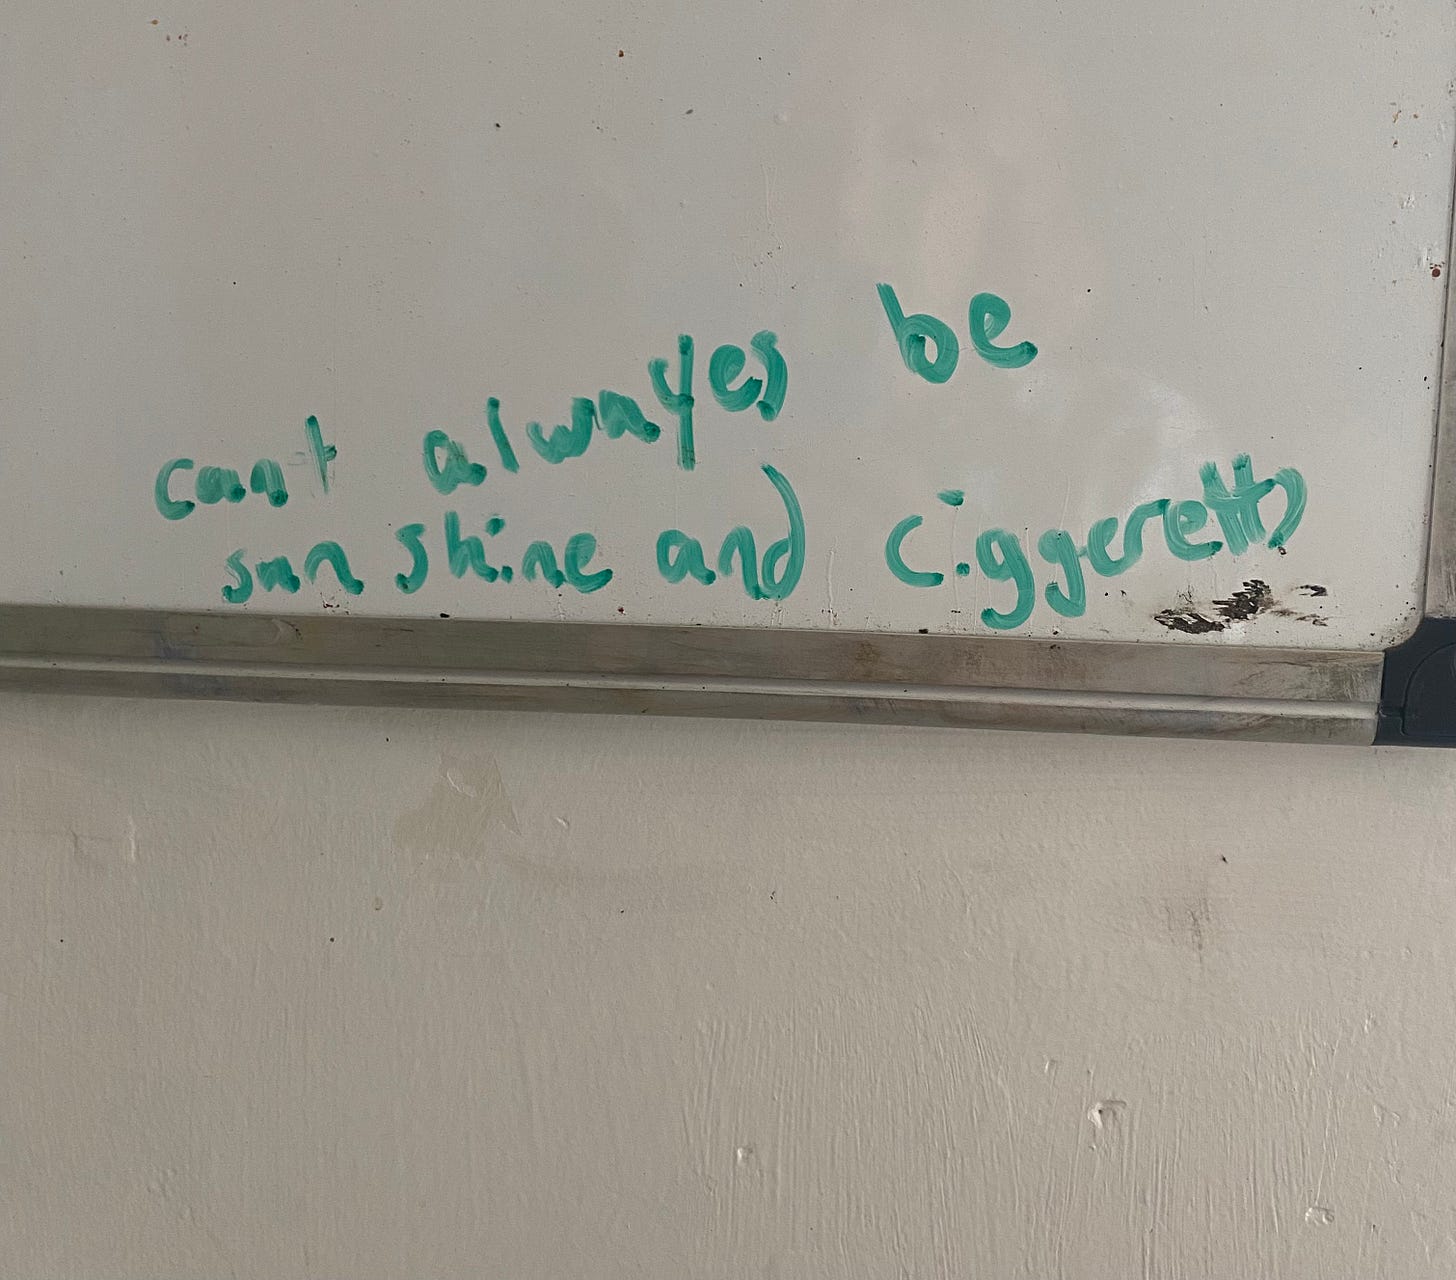 can't alwayes be
sun shine and ciggeretts